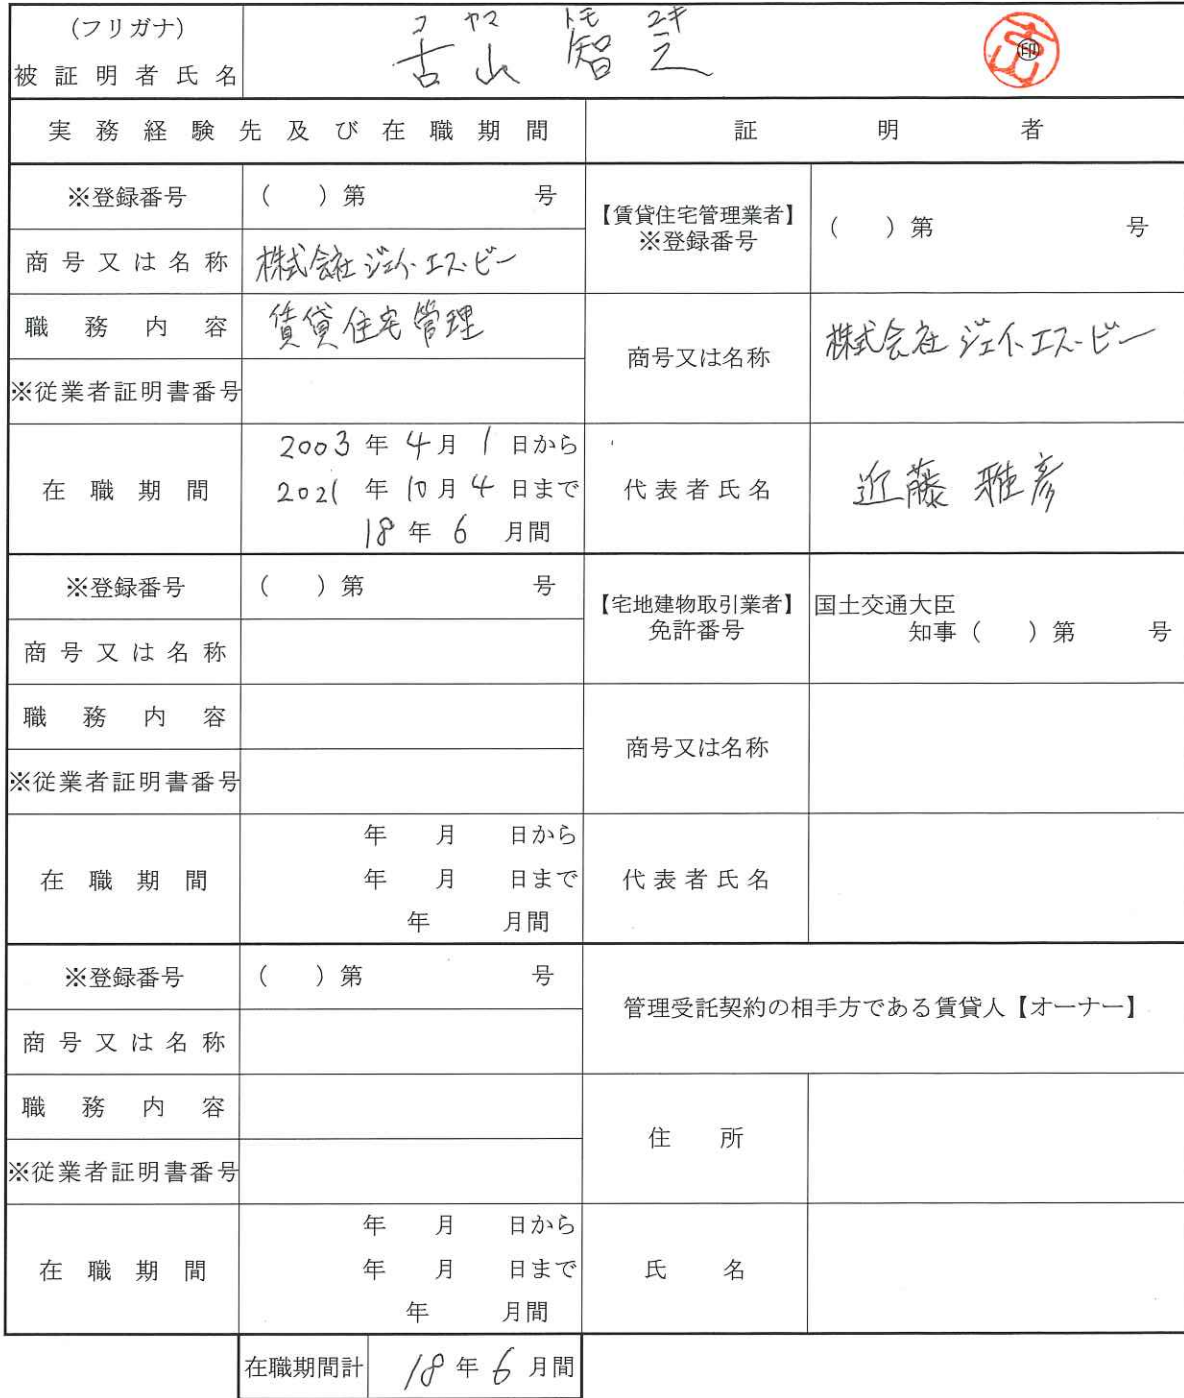 (フリガナ) コヤマ トモユキ
被証明者氏名 古山 智之 印
実務経験先及び在職期間 証明者
※登録番号 ( )第 号
【賃貸住宅管理業者】
※登録番号 ( )第 号
商号又は名称 株式会社ジェイ・エス・ビー
職務内容 賃貸住宅管理
商号又は名称 株式会社ジェイ・エス・ビー
※従業者証明書番号
在職期間
2003年4月1日から
2021年10月4日まで
18年6月間
代表者氏名 近藤 雅彦
※登録番号 ( )第 号
【宅地建物取引業者】
免許番号
国土交通大臣
知事( )第 号
商号又は名称
職務内容
商号又は名称
※従業者証明書番号
在職期間
年 月 日から
年 月 日まで
年 月間
代表者氏名
※登録番号 ( )第 号
管理受託契約の相手方である賃貸人【オーナー】
商号又は名称
職務内容
住所
※従業者証明書番号
在職期間
年 月 日から
年 月 日まで
年 月間
氏名
在職期間計 18年6月間